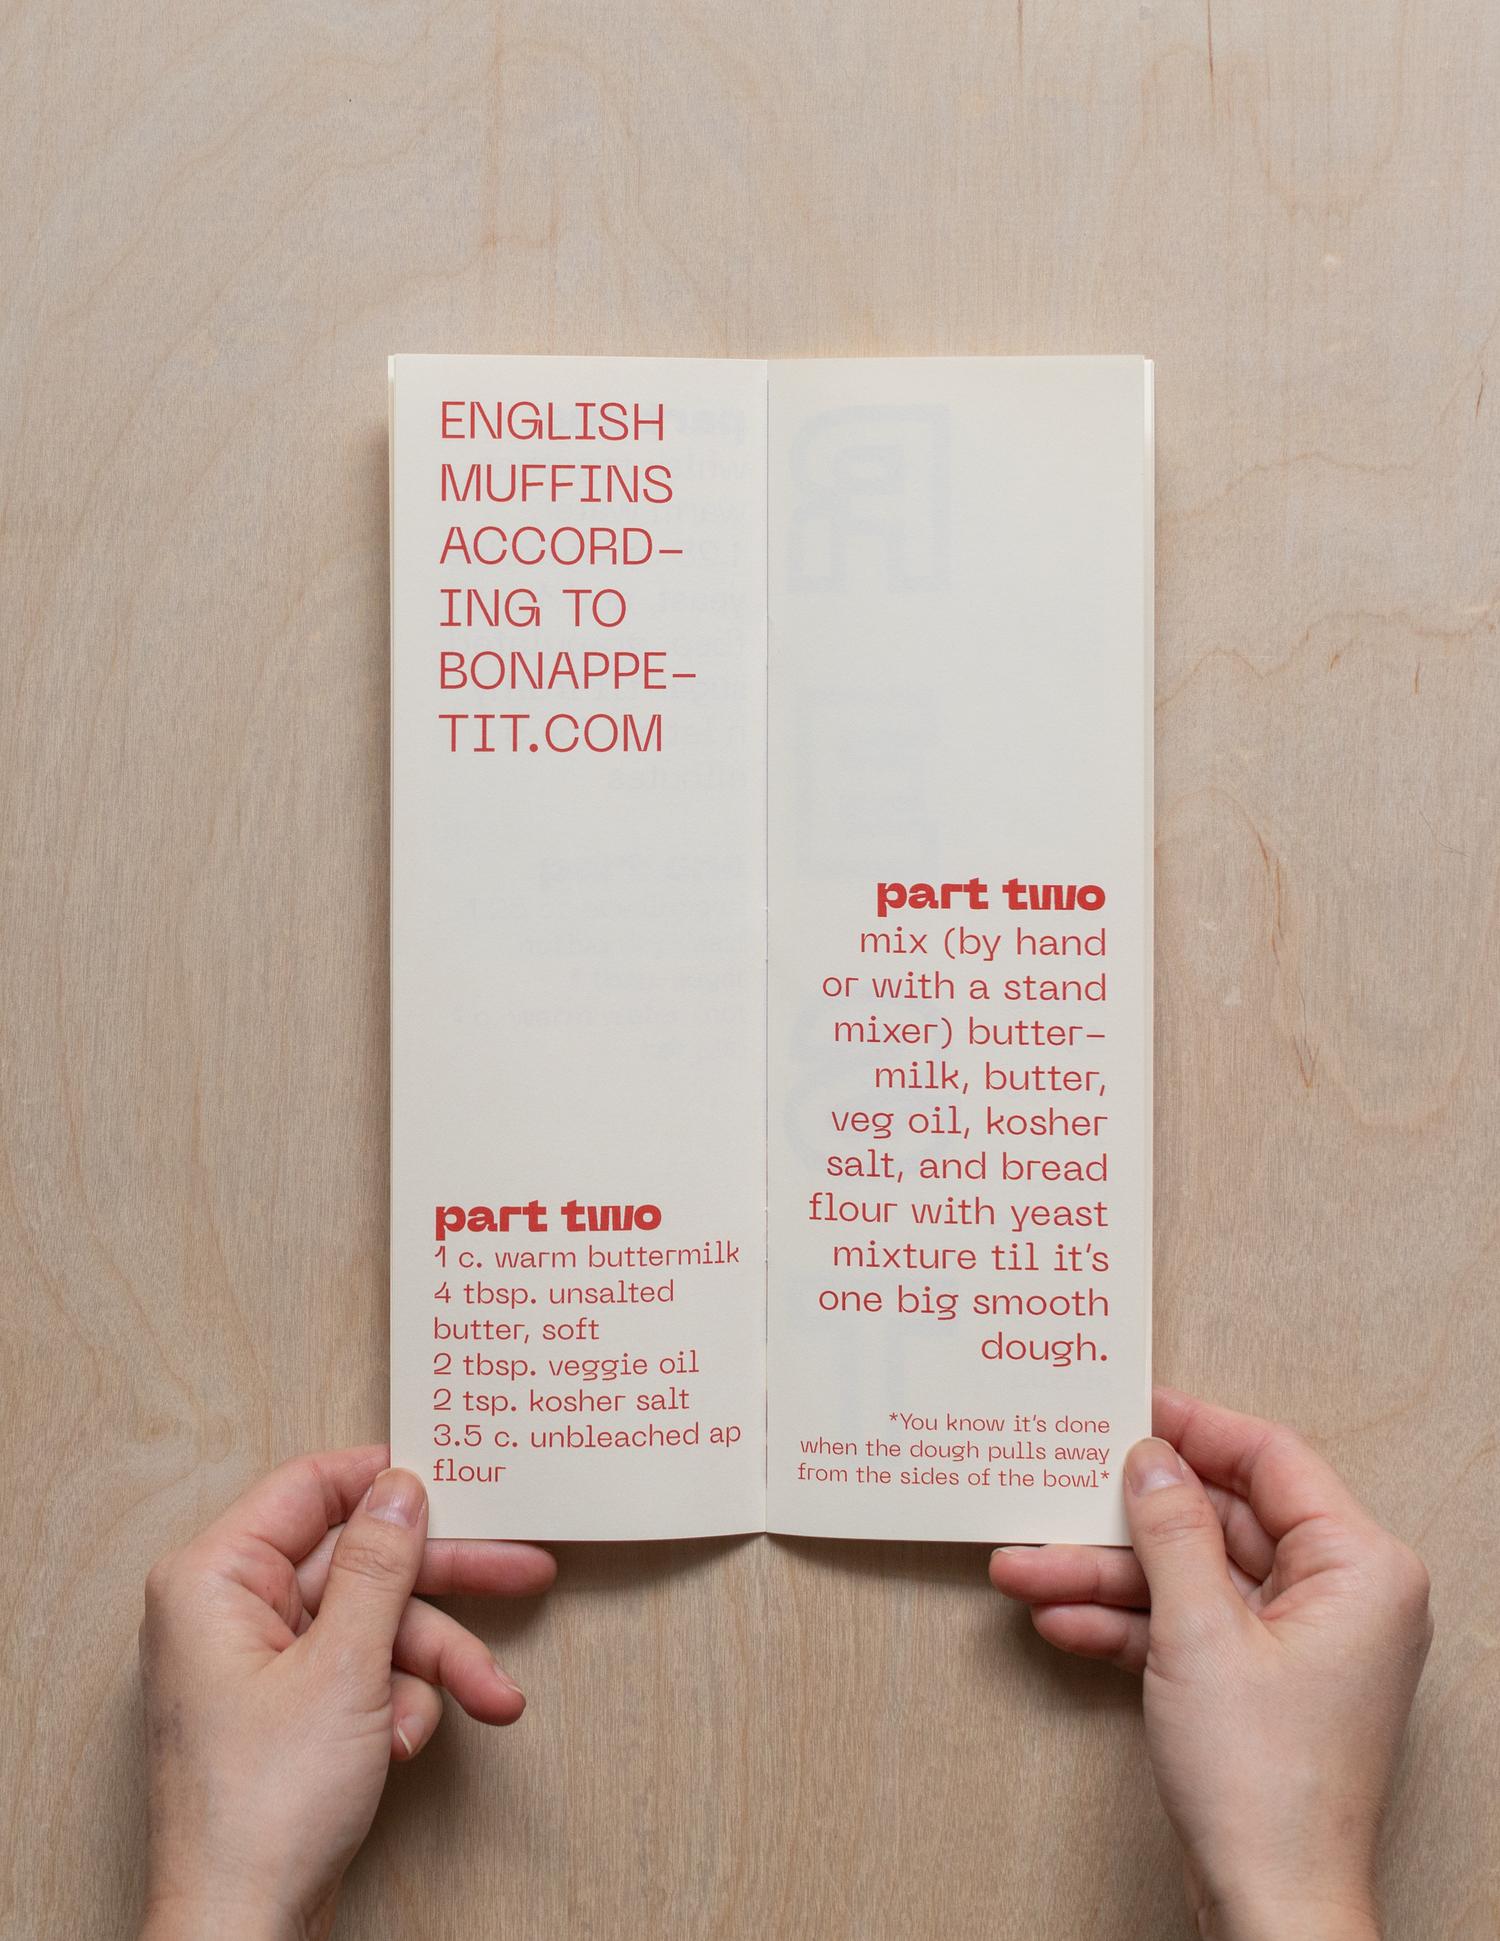 ENGLISH
MUFFINS
ACCORD-
ING TO
BONAPPE-
TIT.COM
part two
1 c. warm buttermilk
4 tbsp. unsalted
butter, soft
2 tbsp. veggie oil
2 tsp. kosher salt
3.5 c. unbleached ap
flour
part two
mix (by hand
or with a stand
mixer) butter-
milk, butter,
veg oil, kosher
salt, and bread
flour with yeast
mixture til it's
one big smooth
dough.
*You know it's done
when the dough pulls away
from the sides of the bowl*